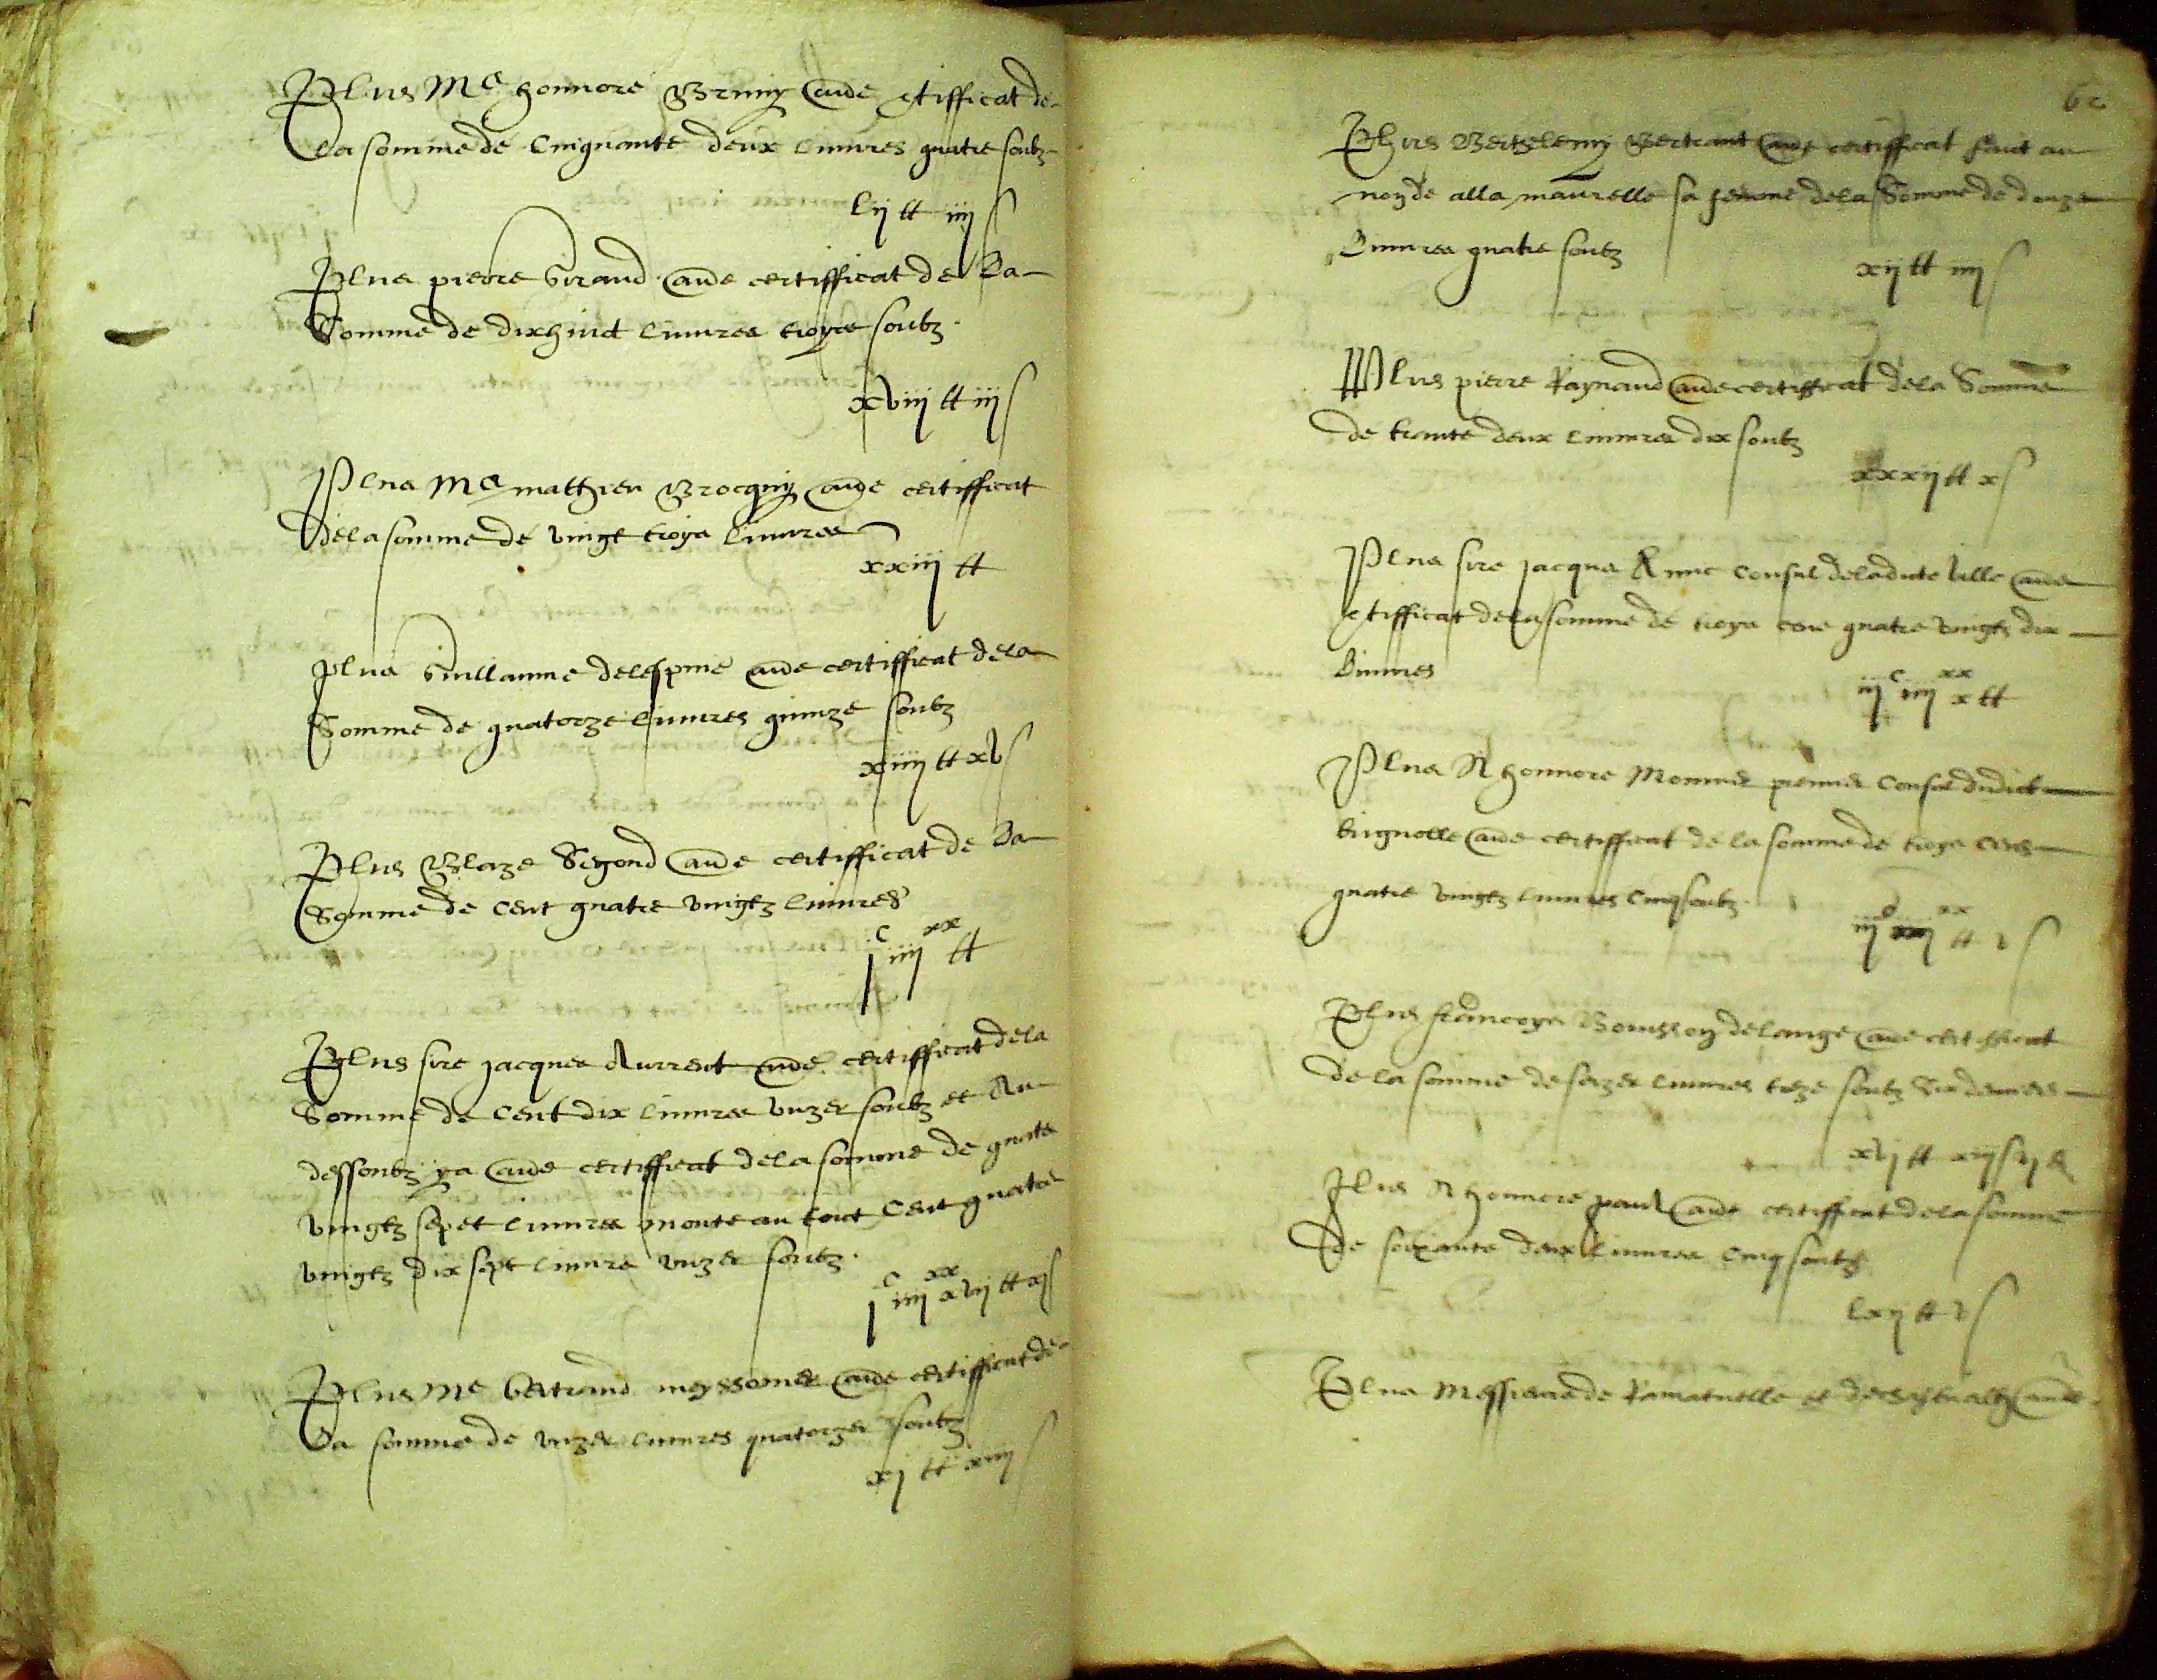 Plus Me honnore Brmy aude certifficat de
la somme de cinquante deux livres quatre soubz
lij tt iiij s
Plus pierre Giraud aude certifficat de la
Somme de dixhuict livres troys soubz
xviij tt iij s
Plus Me matthieu Brocquy aude certifficat
de la somme de vingt troys livres
xxiij tt
Plus Guillaume delespine aude certifficat de la
Somme de quatorze livres quinze soubz
xiiij tt xv s
Plus Blaze Segond aude certifficat de la
Somme de cent quatre vingtz livres
j c iiij xx tt
Plus sire Jacques Aurrent aude certifficat de la
Somme de cent dix livres unze soubz et Au
dessoubz ya aude certifficat de la somme de quatre
vingtz sept livres monte au tout cent quatre
vingtz dix sept livres unze soubz
j c iiij xx xvij tt xj s
Plus Me bertrand meyssonier aude certifficat de
la somme de unze livres quatorze soubz
xj tt xiiij s
62
Plus Berthelemy Bertrant aude certifficat faict au
nom de alla maurelle sa femme de la Somme de douze
livres quatre soubz
xij tt iiij s
Plus pierre Raynaud aude certifficat de la Somme
de trante deux livres dix soubz
xxxij tt x s
Plus sire Jacques consul de ladicte ville aude
certifficat de la somme de troys cens quatre vingtz dix
livres
iij c iiij xx x tt
Plus honnore Monnier premier consul dudict
aude certifficat de la somme de troys cens
quatre vingtz livres cinq soubz
iij c iiij xx tt v s
Plus francoys Bouisson delange aude certifficat
de la somme de seize livres treze soubz six deniers
xvj tt xiij s vj d
Plus honnore paul aude certifficat de la somme
de soixante deux livres cinq soubz
lxij tt v s
Plus Messieurs de Ramatuelle et aude